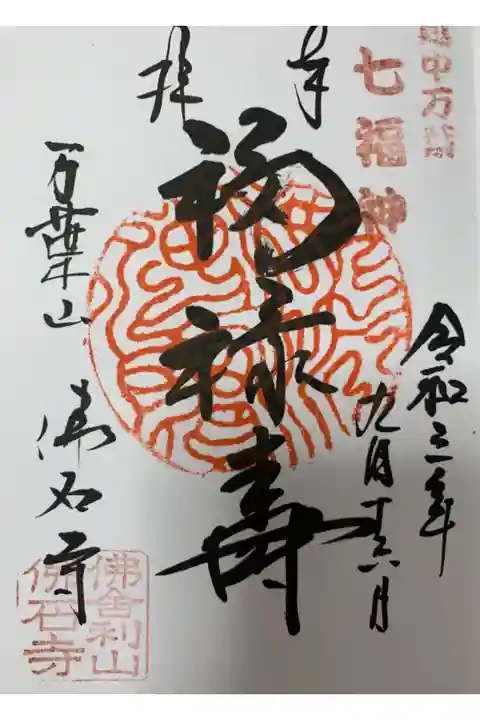 越中万葉
七福神
奉拝
令和三年
九月十六日
福禄寿
万葉山
佛石寺
佛舎利山
佛石寺